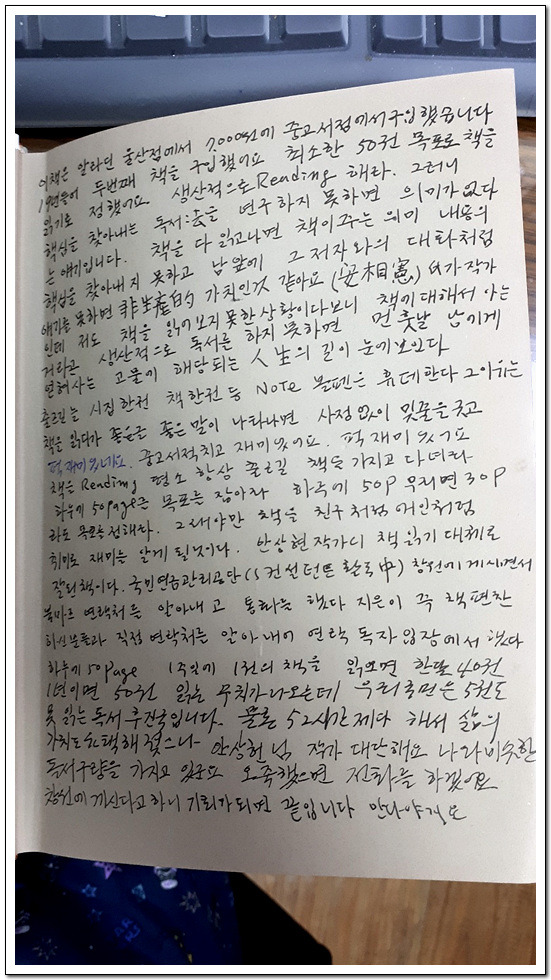 이책은 알라딘 울산점에서 7,000원에 중고서점에서구입했습니다
19년들어 두번째 책을 구입했어요 최소한 50권 목표로 책을
읽기로 정했어요. 생산적으로 Reading 해라. 그러니
핵심을 찾아내는 독서:훈을 연구하지 못하면 의미가 없다
는 얘기입니다. 책을 다 읽고나면 책이주는 의미 내용의
핵심을 찾아내지 못하고 남앞에 그 저자와의 대화처럼
얘기를 못하면 非生産的 가치인것 같아요 (安相憲) 씨가 작가
인데 저도 책을 읽어보지 못한 상황이다보니 책에 대해서 아는
거라곤 생산적으로 독서를 하지 못하면 먼 훗날 남에게
연해사는 고물에 해당되는 人生의 길이 눈에보인다
출근길 시집 한권 책 한권 등 Note 볼펜은 휴대한다 그이유는
책을 읽다가 좋은글 좋은 말이 나타나면 사정없이 밑줄을 긋고
퍽 재미있네요. 중고서적치고 재미있어요. 퍽 재미 있어요
책을 Reading 평소 항상 출근길 책을 가지고 다녀라
하루에 50page은 목표를 잡아라 하루에 50P 무리면 30P
라도 목표를 정해라. 그래야만 책을 친구처럼 애인처럼
취미로 재미를 알게 될것이다. 안상헌 작가니 책 읽기 대체로
잘된책이다. 국민연금관리공단 (CS 컨설턴트 활동中) 창원에 계시면서
연락처를 알아내고 통화를 했다 지은이 꼭 책 편찬
하신분들과 직접 연락처를 알아내어 연락 독자입장에서 했다
하루에 50page 1주일에 1권의 책을 읽으면 한달 4권
1년이면 50권 읽는 무리가나오는데 우리국민은 5권도
못 읽는 독서후진국입니다. 물론 52시간 제다 해서 삶의
가치도 선택해 졌으나 안상헌 님 작가 대단해요 나와 비슷한
독서구량을 가지고 있군요 오죽했으면 전화를 하겠어요
창원에 계신다고 하니 기회가되면 끝입니다 만나야지요